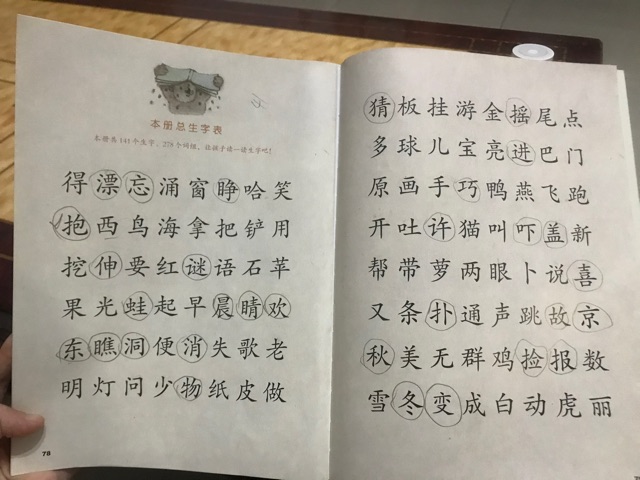 本册总生字表
本册共141个生字，278个词组，让孩子读一读生字吧！
得漂忘涌窗睁哈笑
抱西鸟海拿把铲用
挖伸要红谜语石苹
果光蛙起早晨晴欢
东瞧洞便消失歌老
明灯问少物纸皮做
78
猜板挂游金摇尾点
多球儿宝亮进巴门
原画手巧鸭燕飞跑
开吐许猫叫吓盖新
帮带萝两眼卜说喜
又条扑通声跳故京
秋美无群鸡捡报数
雪冬变成白动虎丽